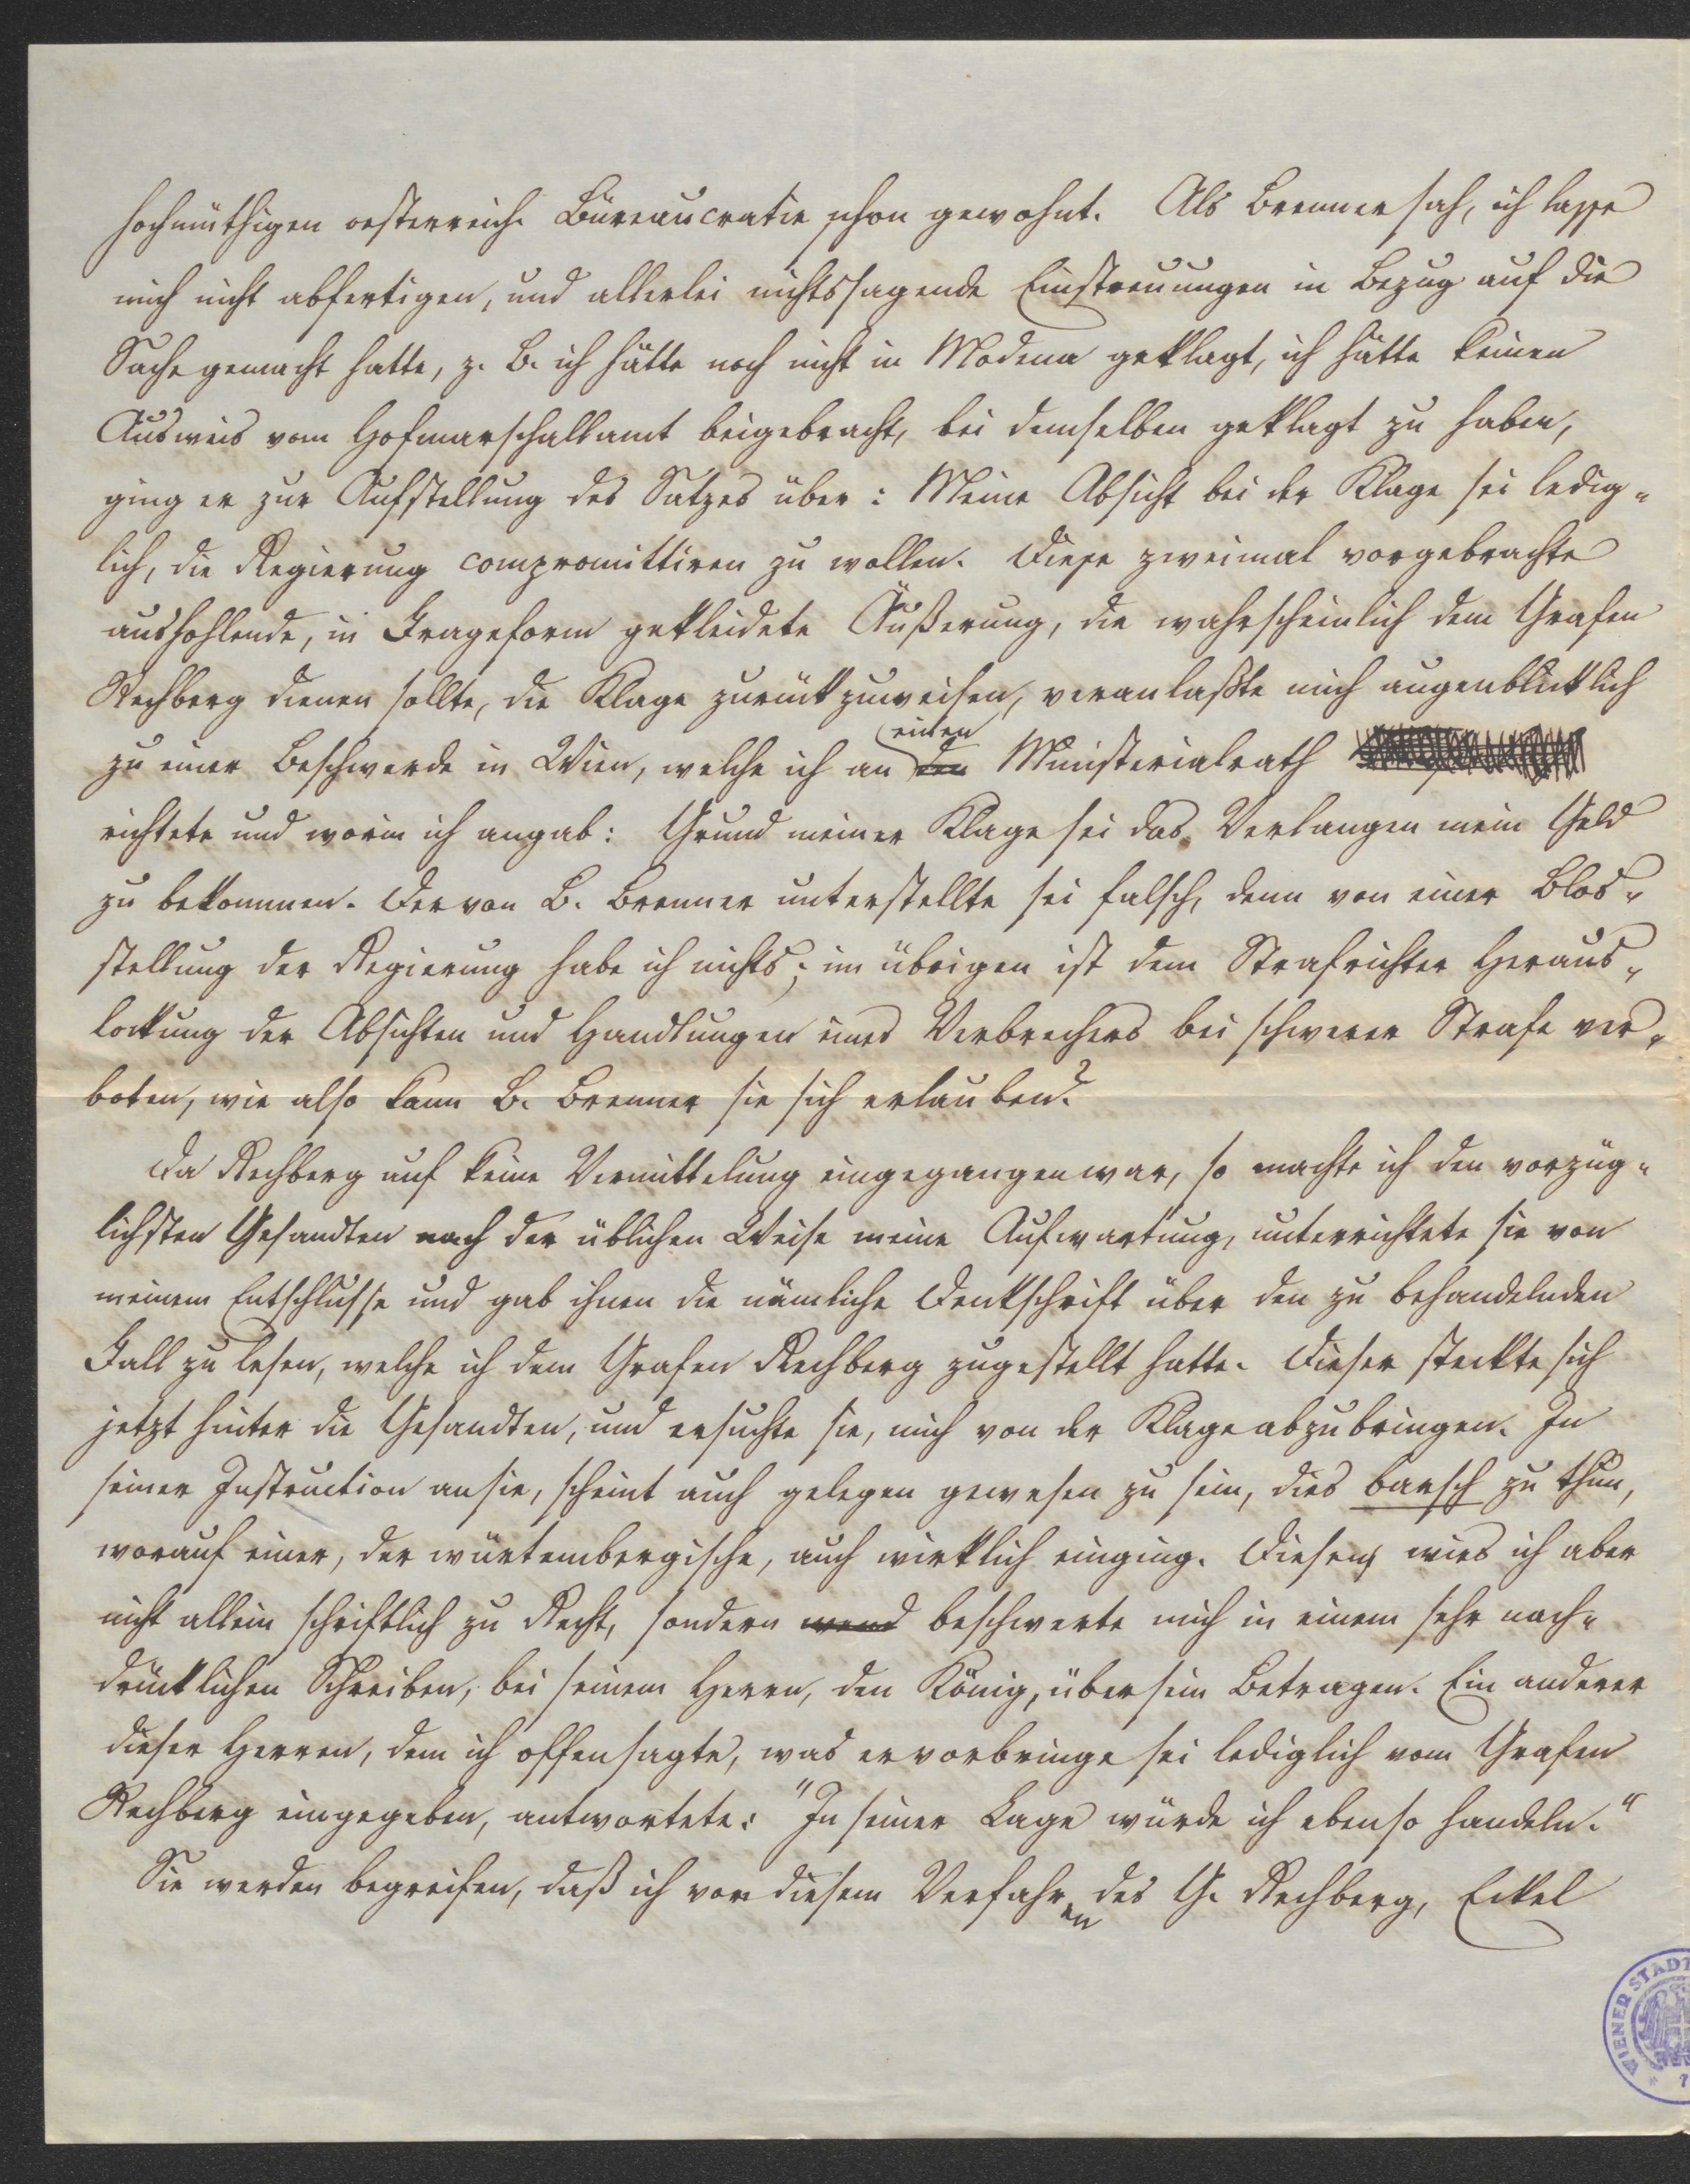 hochmüthigen oesterreich. Büreaucratie schon gewohnt. Als Brenner sah, ich lasse
mich nicht abfertigen, und allerlei nichtssagende Einstreuungen in Bezug auf die
Sache gemacht hatte, z. B. ich hätte noch nicht in Modena geklagt, ich hätte keinen
Ausweis vom Hofmarschallamt beigebracht, bei demselben geklagt zu haben,
ging er zur Aufstellung des Satzes über: Meine Absicht bei der Klage sei ledig-
lich, die Regierung compromittiren zu wollen. Diese zweimal vorgebrachte
aushohlende, in Frageform gekleidete Äußerung, die wahrscheinlich dem Grafen
Rechberg dienen sollte, die Klage zurückzuweisen, veranlaßte mich augenblicklich
zu einer Beschwerde in Wien, welche ich an den einen Ministerialrath
richtete und worin ich angab: Grund meiner Klage sei das Verlangen mein Geld
zu bekommen. Der von B. Brenner unterstellte sei falsch, denn von einer Blos-
stellung der Regierung habe ich nichts; im übrigen ist dem Strafrichter Heraus-
lockung der Absichten und Handlungen eines Verbrechers bei schwerer Strafe ver-
boten, wie also kann B. Brenner sie sich erlauben?
Da Rechberg auf keine Vermittelung eingegangen war, so machte ich den vorzüg-
lichsten Gesandten nach der üblichen Weise meine Aufwartung, unterrichtete sie von
meinem Entschlusse und gab ihnen die nämliche Denkschrift über den zu behandelnden
Fall zu lesen, welche ich dem Grafen Rechberg zugestellt hatte. Dieser steckte sich
jetzt hinter die Gesandten, und ersuchte sie, mich von der Klage abzubringen. In
seiner Instruction an sie, scheint auch gelegen gewesen zu sein, dies barsch zu thun,
worauf einer, der würtembergische, auch wirklich einging. Diesen wies ich aber
nicht allein schriftlich zu Recht, sondern wand beschwerte mich in einem sehr nach-
drücklichen Schreiben, bei seinem Herrn, den König, über sein Betragen. Ein anderer
dieser Herren, dem ich offen sagte, was er vorbringe sei lediglich vom Grafen
Rechberg eingegeben, antwortete: "In seiner Lage würde ich ebenso handeln."
Sie werden begreifen, daß ich vor diesem Verfahren des G. Rechberg, Eckel
WIENER STADT